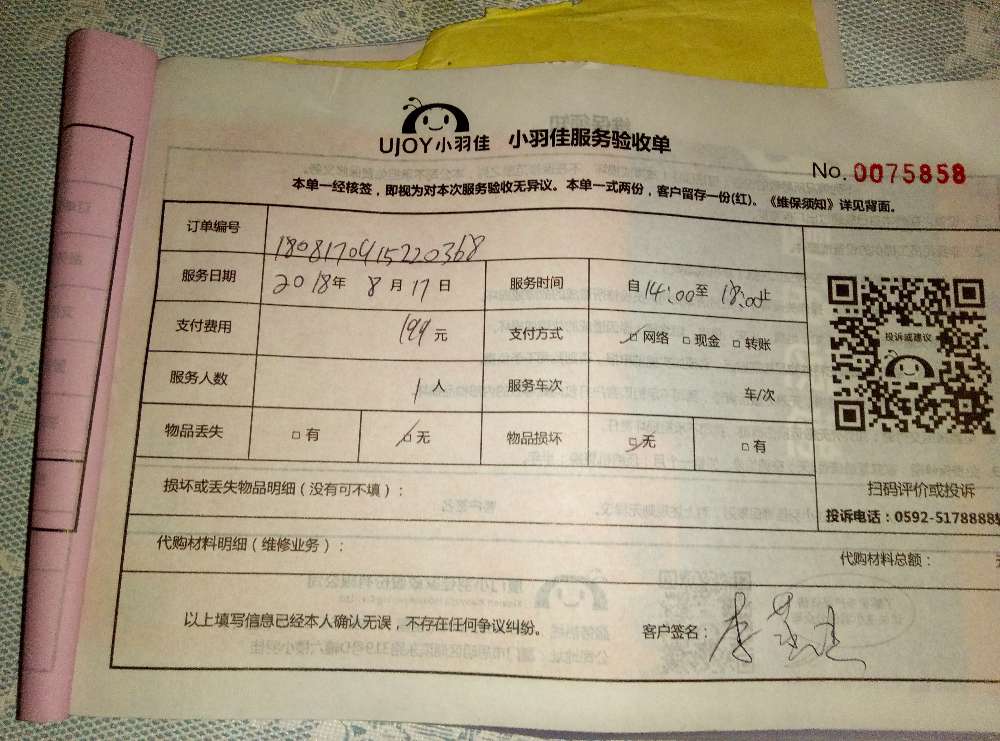 UJOY小羽佳 小羽佳服务验收单
No. 0075858
本单一经核签，即视为对本次服务验收无异议。本单一式两份，客户留存一份(红)。《维保须知》详见背面。
订单编号 1808170415220368
服务日期 2018年 8月17日 服务时间 自14:00至 18:00止
支付费用 199元 支付方式 □网络 □现金 □转账
服务人数 1人 服务车次 车/次
物品丢失 □有 □无 物品损坏 □无 □有
投诉或建议
扫码评价或投诉
投诉电话：0592-5178888
损坏或丢失物品明细（没有可不填）：
代购材料明细（维修业务）： 代购材料总额：
以上填写信息已经本人确认无误，不存在任何争议纠纷。 客户签名：